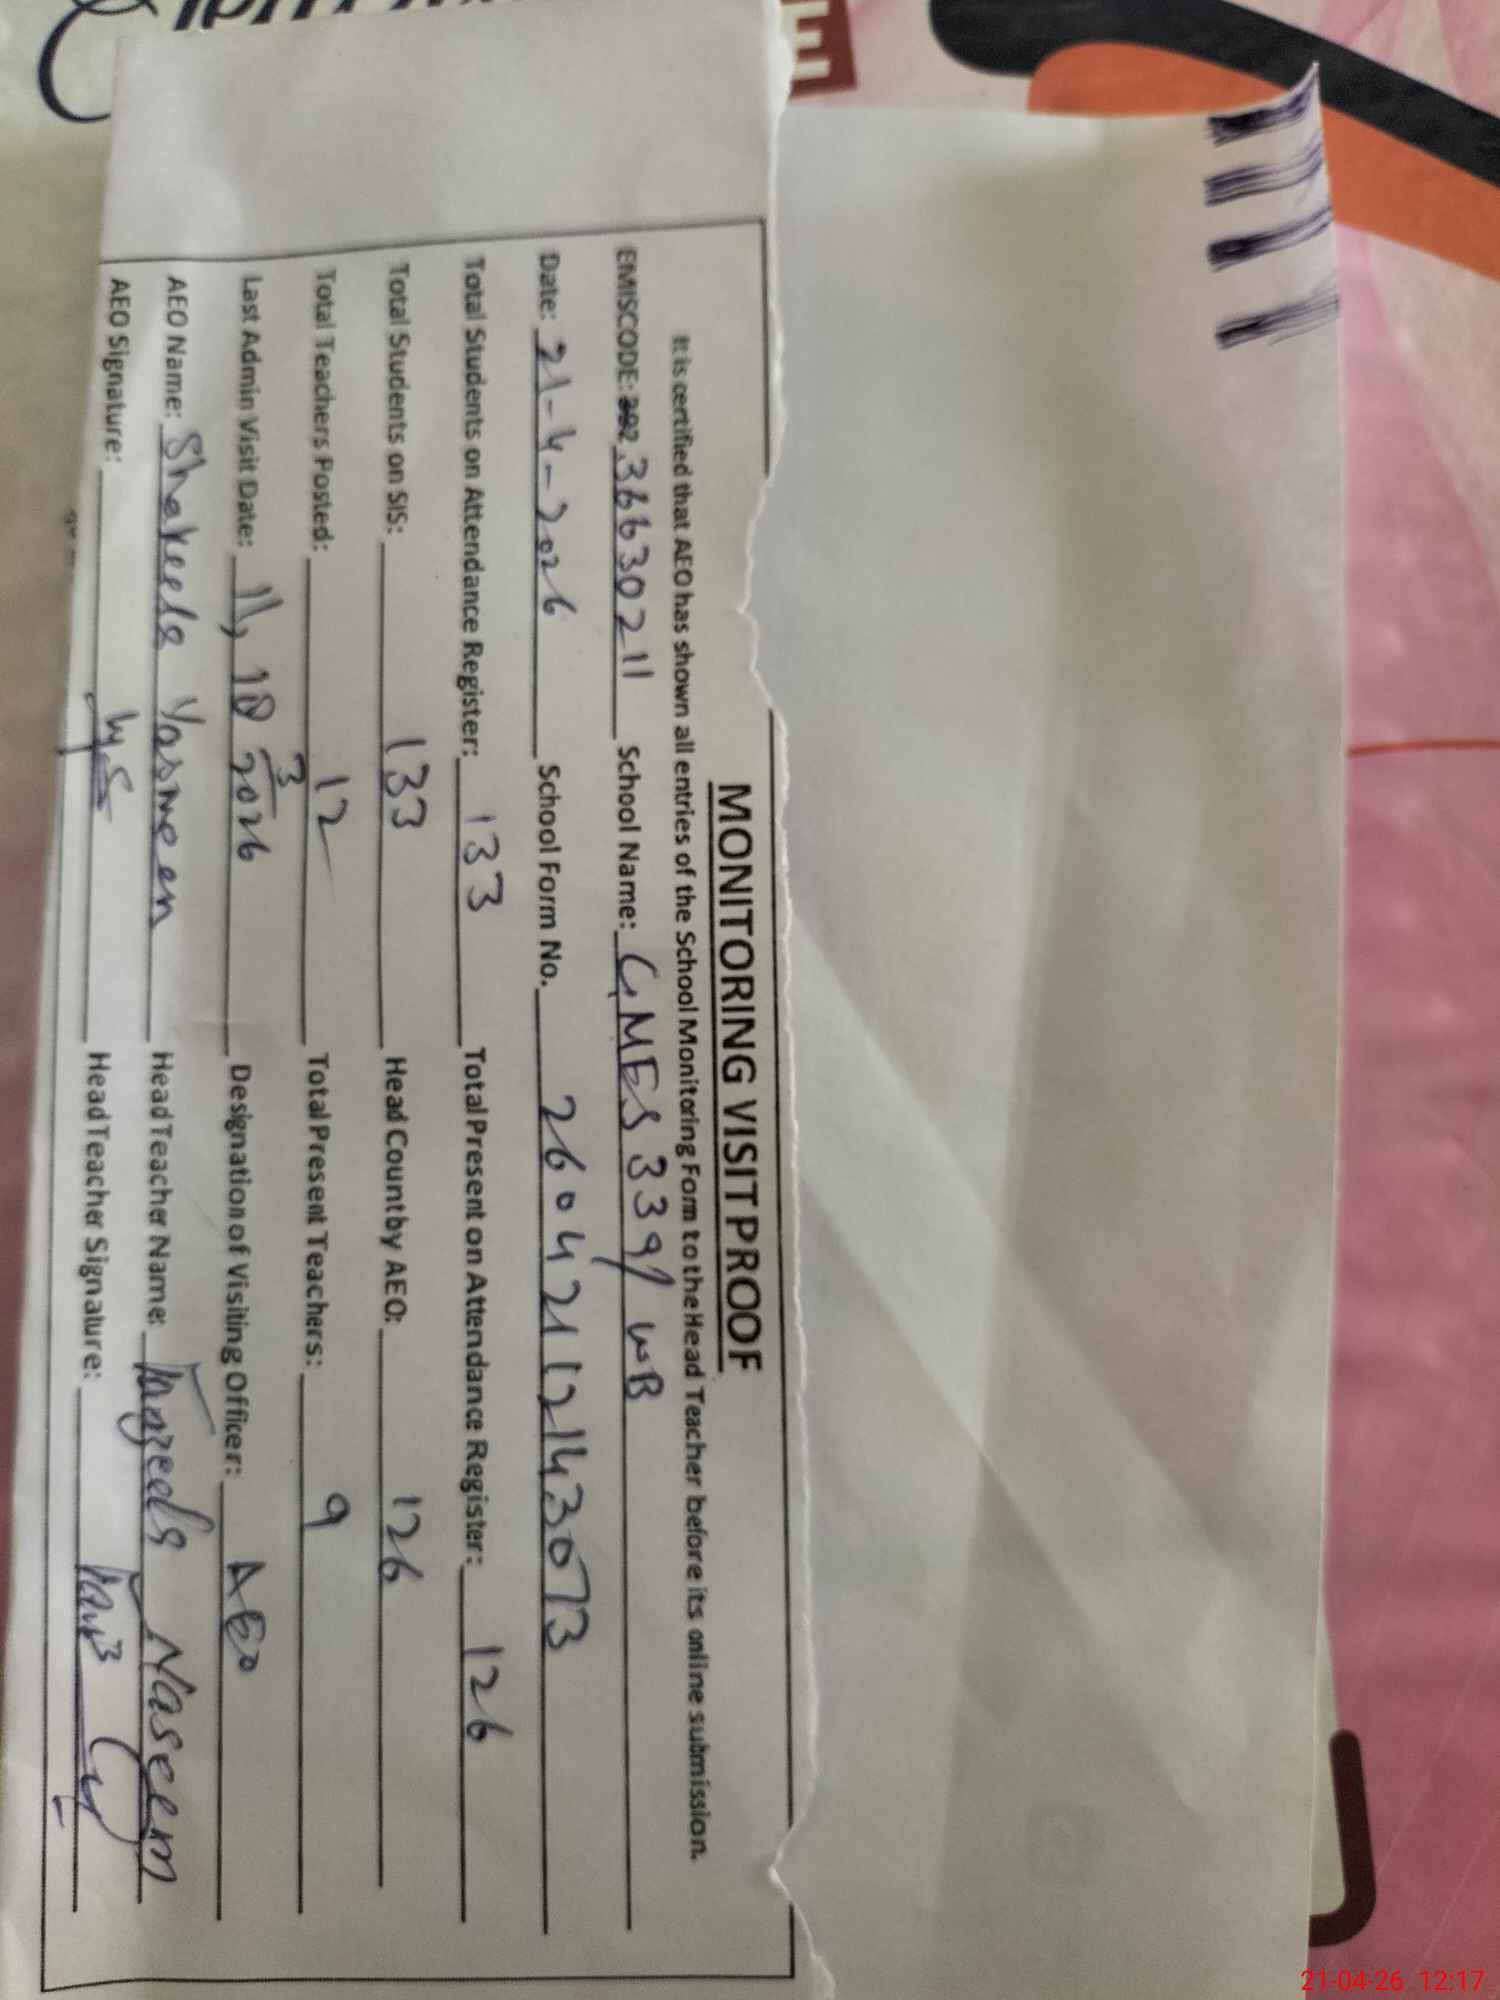 MONITORING VISIT PROOF
It is certified that AEO has shown all entries of the School Monitoring Form to the Head Teacher before its online submission.
EMISCODE: 36630211 School Name: GMES 339/WB
Date: 21-4-2026 School Form No. 26042112143073
Total Students on Attendance Register: 133 Total Present on Attendance Register: 126
Total Students on SIS: 133 Head Count by AEO: 126
Total Teachers Posted: 12 Total Present Teachers: 9
Last Admin Visit Date: 11, 18 3/2026 Designation of Visiting Officer: AEO
AEO Name: Shakeela Yasmeen Head Teacher Name: Tanzeela Naseem
AEO Signature: Head Teacher Signature:
21-04-26 12:17